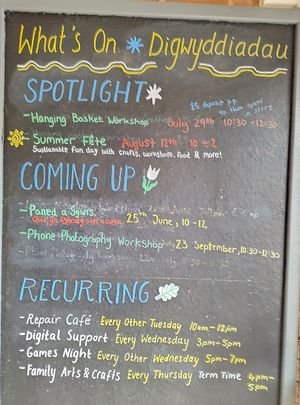 What's On * Digwyddiadau
SPOTLIGHT
£5 deposit pp
to then spend
in store
- Hanging Basket Workshop July 29th 10:30 - 12:30
- Summer Fête August 12th 10 - 2
Sustainable fun day with crafts, workshops, food & more!
COMING UP
- Paned a Sgwrs. 25th June, 10-12
- Phone Photography Workshop 23 September, 10:30-12:30
RECURRING
- Repair Café Every Other Tuesday 10am - 12pm
- Digital Support Every Wednesday 3pm - 5pm
- Games Night Every Other Wednesday 5pm - 7pm
- Family Arts & Crafts Every Thursday Term Time 4pm -
5pm